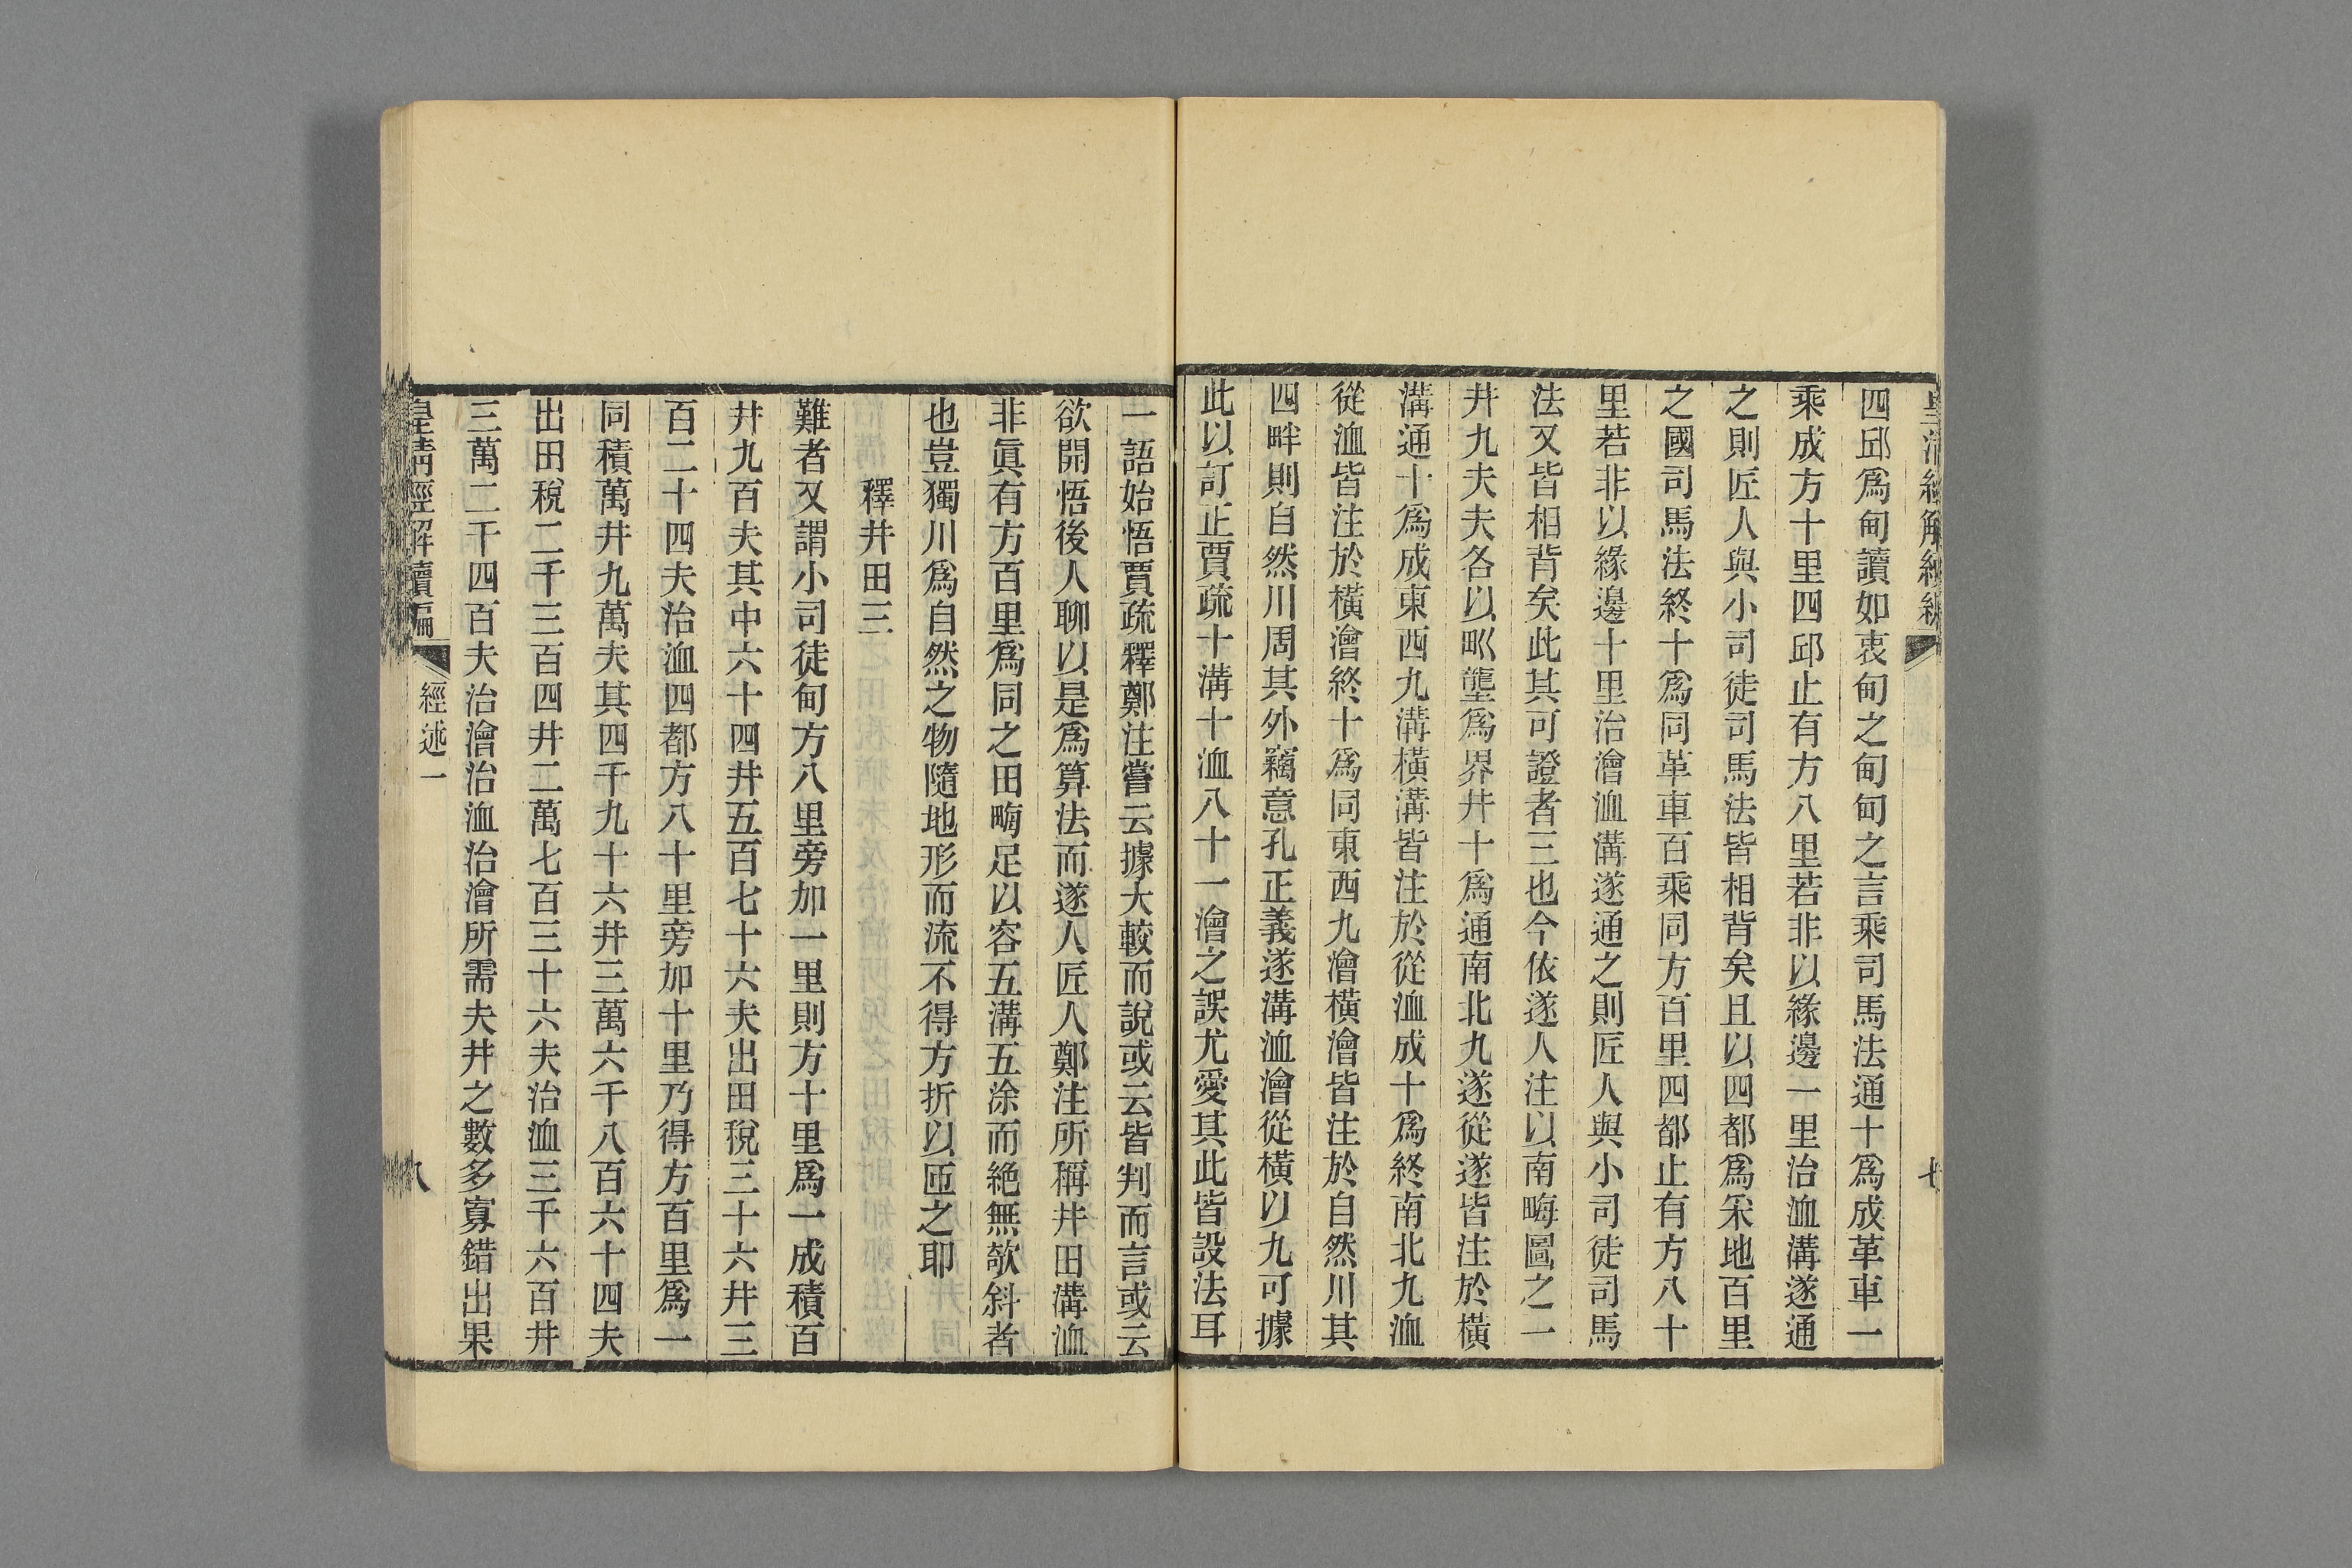 四邱爲甸讀如衷甸之甸甸之言乘司馬法通十爲成革車一
乘成方十里四邱止有方八里若非以緣邊一里治洫溝遂通
之則匠人與小司徒司馬法皆相背矣且以四都爲采地百里
之國司馬法終十爲同革車百乘同方百里四都止有方八十
里若非以緣邊十里治澮洫溝遂通之則匠人與小司徒司馬
法又皆相背矣此其可證者三也今依遂人注以南畮圖之一
井九夫夫各以甽壟爲界井十爲通南北九遂從遂皆注於橫
溝通十爲成東西九溝橫溝皆注於從洫成十爲終南北九洫
從洫皆注於橫澮終十爲同東西九澮橫澮皆注於自然川其
四畔則自然川周其外竊意孔正義遂溝洫澮從橫以九可據
此以訂正賈疏十溝十洫八十一澮之誤尤愛其此皆設法耳
一語始悟賈疏釋鄭注嘗云據大較而說或云皆判而言或云
欲開悟後人聊以是爲算法而遂人匠人鄭注所稱井田溝洫
非眞有方百里爲同之田畮足以容五溝五涂而絶無欹斜者
也豈獨川爲自然之物隨地形而流不得方折以匝之耶
釋井田三
難者又謂小司徒甸方八里旁加一里則方十里爲一成積百
井九百夫其中六十四井五百七十六夫出田稅三十六井三
百二十四夫治洫四都方八十里旁加十里乃得方百里爲一
同積萬井九萬夫其四千九十六井三萬六千八百六十四夫
出田稅二千三百四井二萬七百三十六夫治洫三千六百井
三萬二千四百夫治澮治洫治澮所需夫井之數多寡錯出果
皇清經解續編
經述一
八